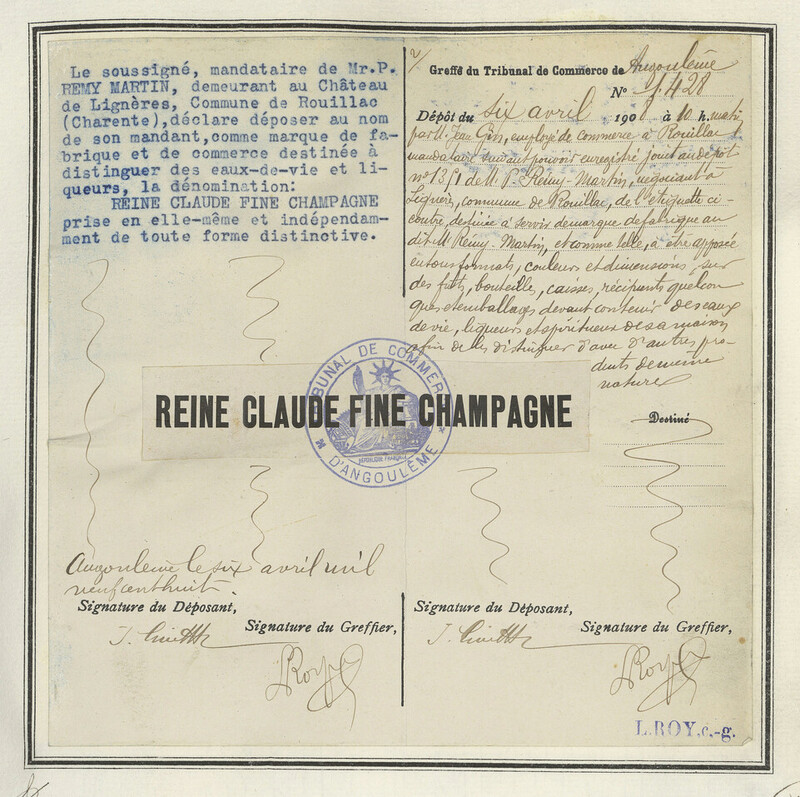 Le soussigné, mandataire de Mr.P.
REMY MARTIN, demeurant au Château
de Lignères, Commune de Rouillac
(Charente),déclare déposer au nom
de son mandant,comme marque de fa-
brique et de commerce destinée à
distinguer des eaux-de-vie et li-
queurs, la dénomination:
REINE CLAUDE FINE CHAMPAGNE
prise en elle-même et indépendam-
ment de toute forme distinctive.
Angoulême le six avril mil
neuf cent huit.
Signature du Déposant,
Signature du Greffier,
LRoy
2/
Greffe du Tribunal de Commerce de Angoulême
No 9.428
Dépôt du six avril 1908 à 10 h. matin
par M. Jean employé de commerce à Rouillac
mandataire suivant pouvoir enregistré joint au dépôt
no 1351 de M P. Rémy-Martin, négociant à
Lignères, commune de Rouillac, de l'étiquette ci-
contre, destinée à servir de marque de fabrique au
dit M. Rémy-Martin, et comme telle, à être apposée
en tous formats, couleurs et dimensions, sur
des fûts, bouteilles, caisses, récipients quelcon
ques et emballages devant contenir des eaux
de vie, liqueurs et spiritueux de sa maison
afin de les distinguer d'avec d'autres pro-
duits de même
nature
REINE CLAUDE FINE CHAMPAGNE
TRIBUNAL DE COMMERCE
RÉPUBLIQUE FRANÇAISE
D'ANGOULÊME
Destiné
Signature du Déposant,
Signature du Greffier,
LRoy
L.ROY.c.-g.